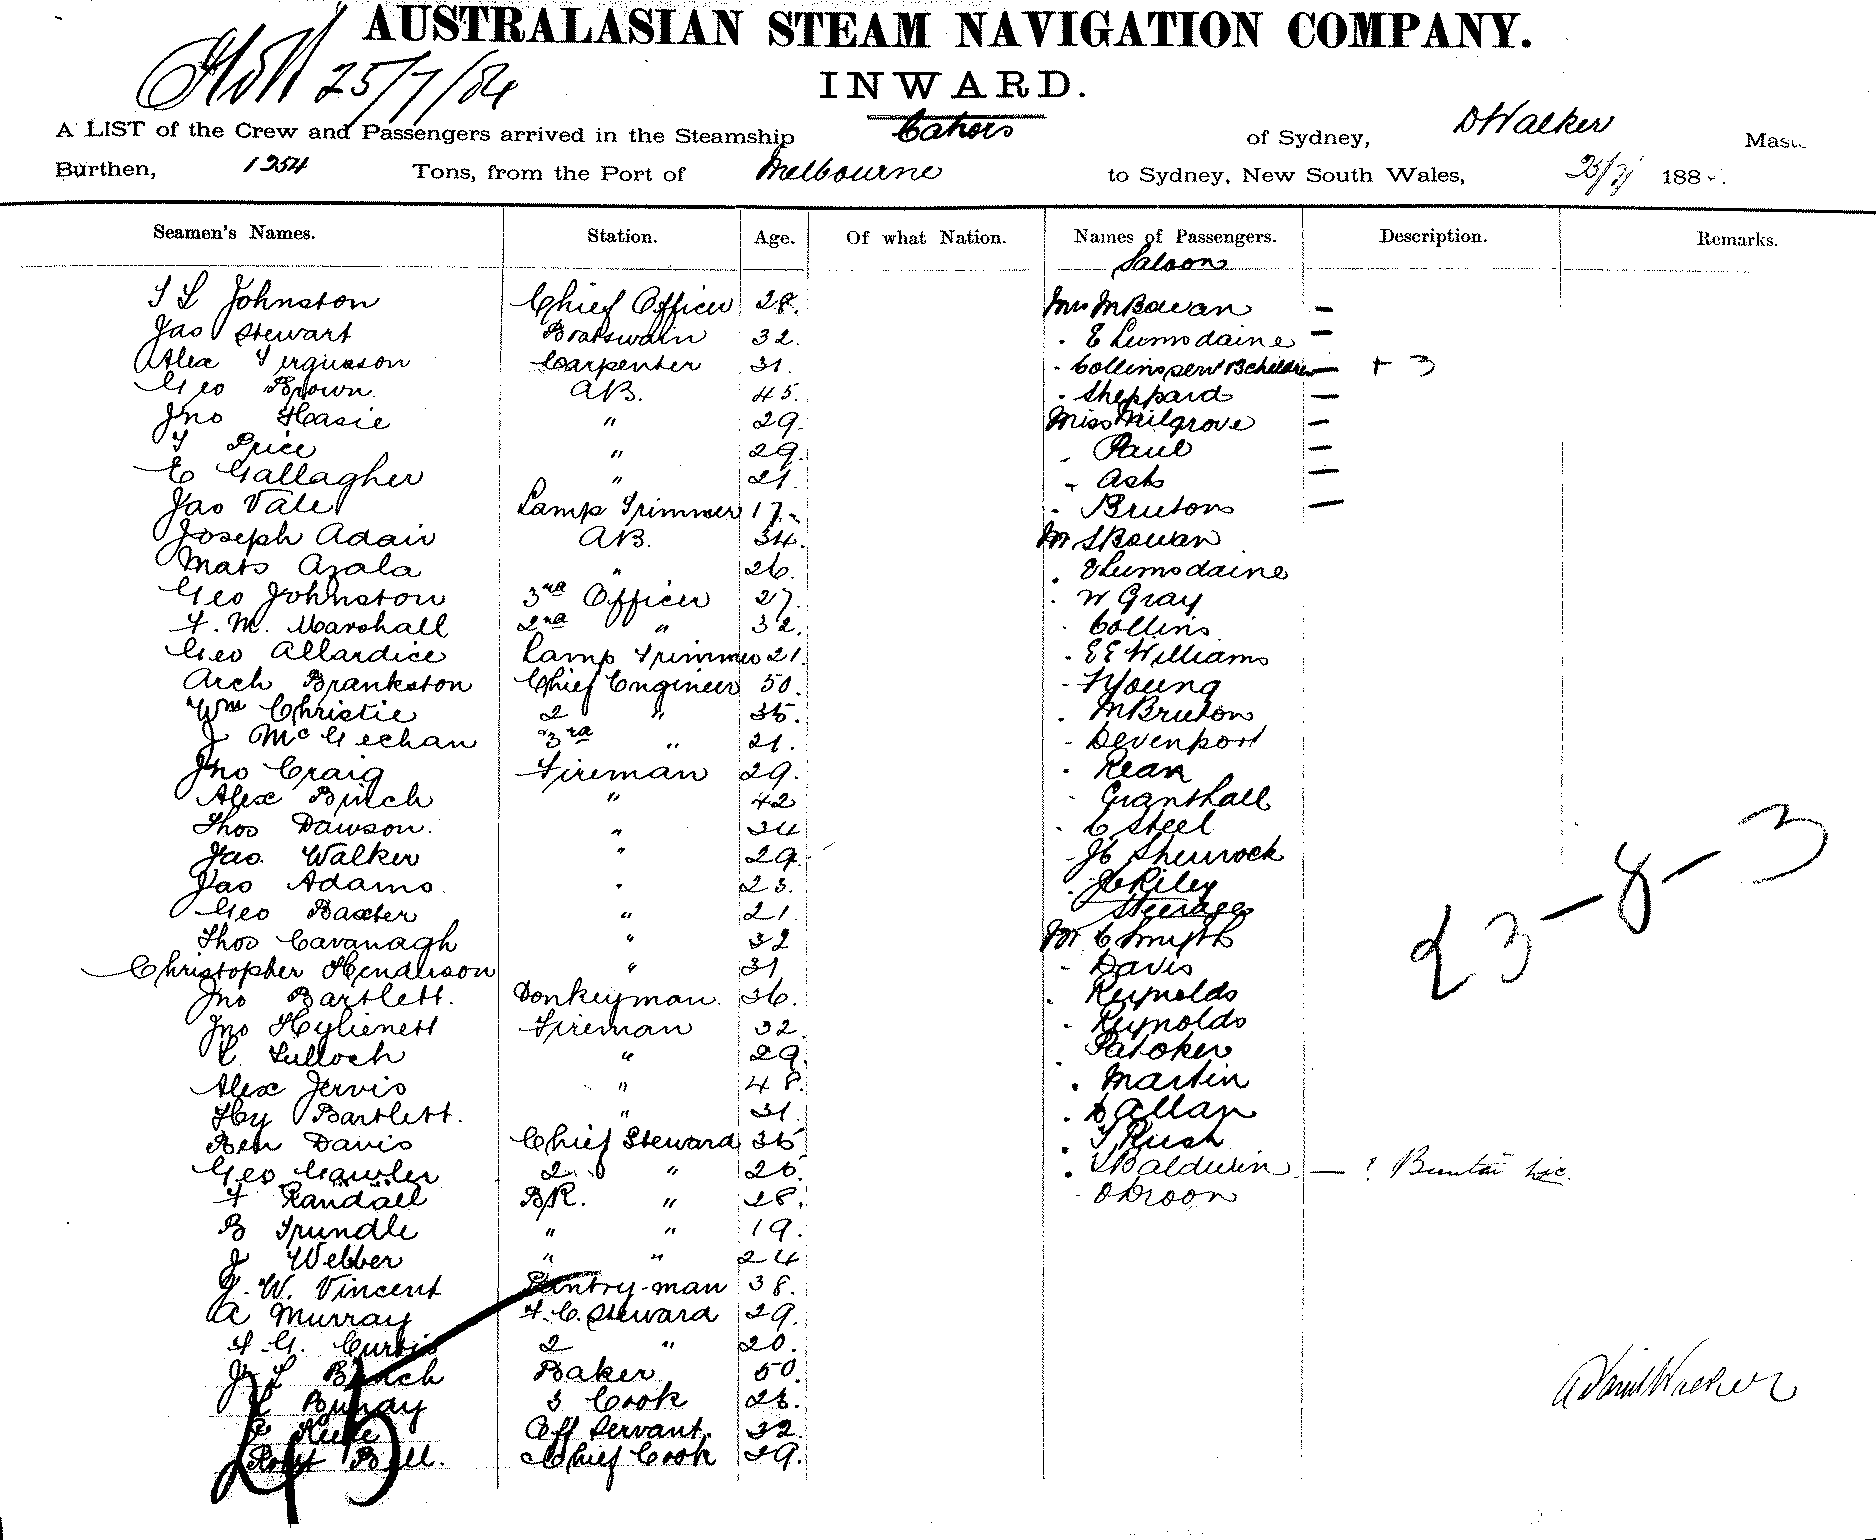 AUSTRALASIAN STEAM NAVIGATION COMPANY.
25/7/84
INWARD.
A LIST of the Crew and Passengers arrived in the Steamship Cahors of Sydney, D Walker Mast.
Burthen, 1254 Tons, from the Port of Melbourne to Sydney, New South Wales, 25/7/ 188
Seamen's Names. Station. Age. Of what Nation. Names of Passengers. Description. Remarks.
Saloon
Johnston Chief Officer 28. Mrs McBowan —
Jas Stewart Boatswain 32. " E Lumsdaine —
Alex Fergusson Carpenter 31. " Collins children — + 3
Geo Brown AB. 45. " Sheppard —
Jno Hasie " 29. Miss Milgrove —
T Price " 29. " Paul —
E Gallagher " 21. " Ash —
Jas Vale Lamp Trimmer 17. " Bruton —
Joseph Adair AB. 34. Mr S Bowan
Mats Azala " 26. " E Lumsdaine
Geo Johnston 3rd Officer 27. " W Gray
F. M. Marshall 2nd " 32. " Collins
Geo Allardice Lamp Trimmer 21. " EE Williams
Arch Brankston Chief Engineer 50. " Young
Wm Christie 2 " 35. " M Bruton
J McGechan 3rd " 21. " Devenport
Jno Craig Fireman 29. " Kean
Alex Birch " 42 " Granthall
Thos Dawson. " 34 " C Steel
Jas. Walker " 29. " Shurrock
Jas Adams " 23. " Riley
Geo Baxter " 21. Steerage
Thos Cavanagh " 32 Mr C Smyth
Christopher Henderson " 31 " Davis
Jno Bartlett. Donkeyman. 36. " Reynolds
23 - 8 - 3
Jno Fireman 32. " Reynolds
Tulloch " 29.
Alex Jervis " 48. " Martin
Hy Bartlett. " 31. " D Allan
Ben Davis Chief Steward 35 " T Rush
Geo Gawler 2 " 26. " Baldwin — ?
F Randall BR. " 28. "
B Trundle " " 19.
J Webber " " 24
J. W. Vincent Pantry-man 38.
A Murray F. C. Steward 29.
F. G. Curtis 2 " 20.
J L Baker 50.
3 Cook 28.
Off Servant. 32.
Robt Bell. Chief Cook 29.